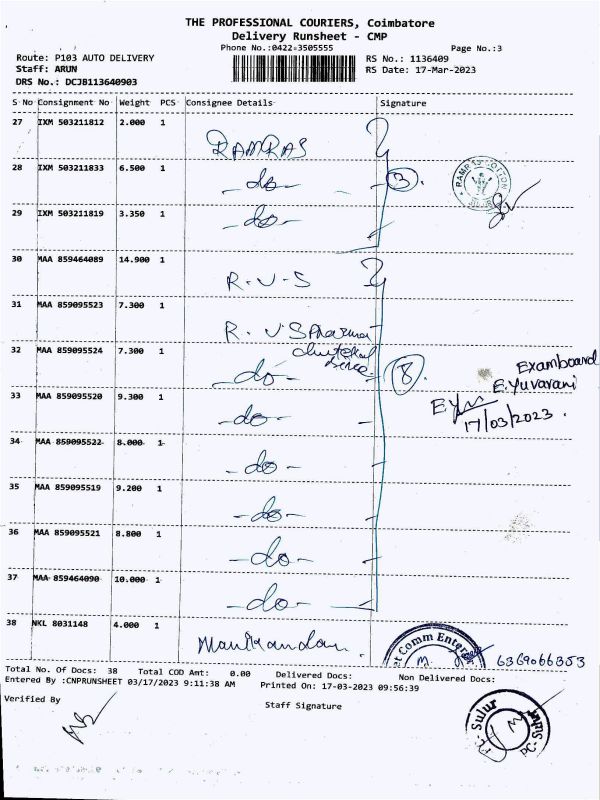 THE PROFESSIONAL COURIERS, Coimbatore
Delivery Runsheet - CMP
Phone No.:0422-3505555 Page No.:3
Route: P103 AUTO DELIVERY RS No.: 1136409
Staff: ARUN RS Date: 17-Mar-2023
DRS No.: DCJB113640903
S No Consignment No Weight PCS Consignee Details Signature
27 IXM 503211812 2.000 1
RAMRAS
28 IXM 503211833 6.500 1
-do- 3.
RAMRAS COTTON
29 IXM 503211819 3.350 1
-do-
30 MAA 859464089 14.900 1
R.V.S
31 MAA 859095523 7.300 1
R. V S Pharma
32 MAA 859095524 7.300 1
-do- 8.
Examboard
E.Yuvarani
17/03/2023.
33 MAA 859095520 9.300 1
-do-
34 MAA 859095522 8.000 1
-do-
35 MAA 859095519 9.200 1
-do-
36 MAA 859095521 8.800 1
-do-
37 MAA 859464090 10.000 1
-do-
38 NKL 8031148 4.000 1
Manikandan.
Comm Enter
6369066353
Total No. Of Docs: 38 Total COD Amt: 0.00 Delivered Docs: Non Delivered Docs:
Entered By :CNPRUNSHEET 03/17/2023 9:11:38 AM Printed On: 17-03-2023 09:56:39
Verified By Staff Signature
PC-Sulur
PC-Sulur